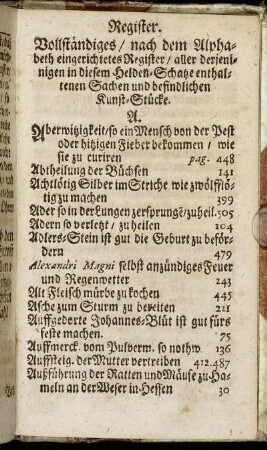 Register.
Vollständiges / nach dem Alpha-
beth eingerichtetes Register / aller derjeni-
nigen in diesem Helden-Schatze enthal-
tenen Sachen und befindlichen
Kunst-Stücke.
A.
Aberwitzigkeit / so ein Mensch von der Pest
oder hitzigen Fieber bekommen / wie
sie zu curiren pag. 448
Abtheilung der Büchsen 141
Achtlötig Silber im Striche wie zwölfflö-
tig zu machen 399
Ader so in der Lungen zersprungē / zuheil. 305
Adern so verletzt / zu heilen 104
Adlers-Stein ist gut die Geburt zu beför-
dern 479
Alexandri Magni selbst anzündiges Feuer
und Regenwetter 243
Alt Fleisch mürbe zu kochen 445
Asche zum Sturm zu bereiten 211
Auffgedorte Johannes-Blüt ist gut fürs
feste machen. 75
Auffmerck. vom Pulverm. so nothw. 136
Auffsteig. der Mutter vertreiben 412.487
Außführung der Ratten und Mäuse zu Ha-
meln an der Weser in Hessen 30